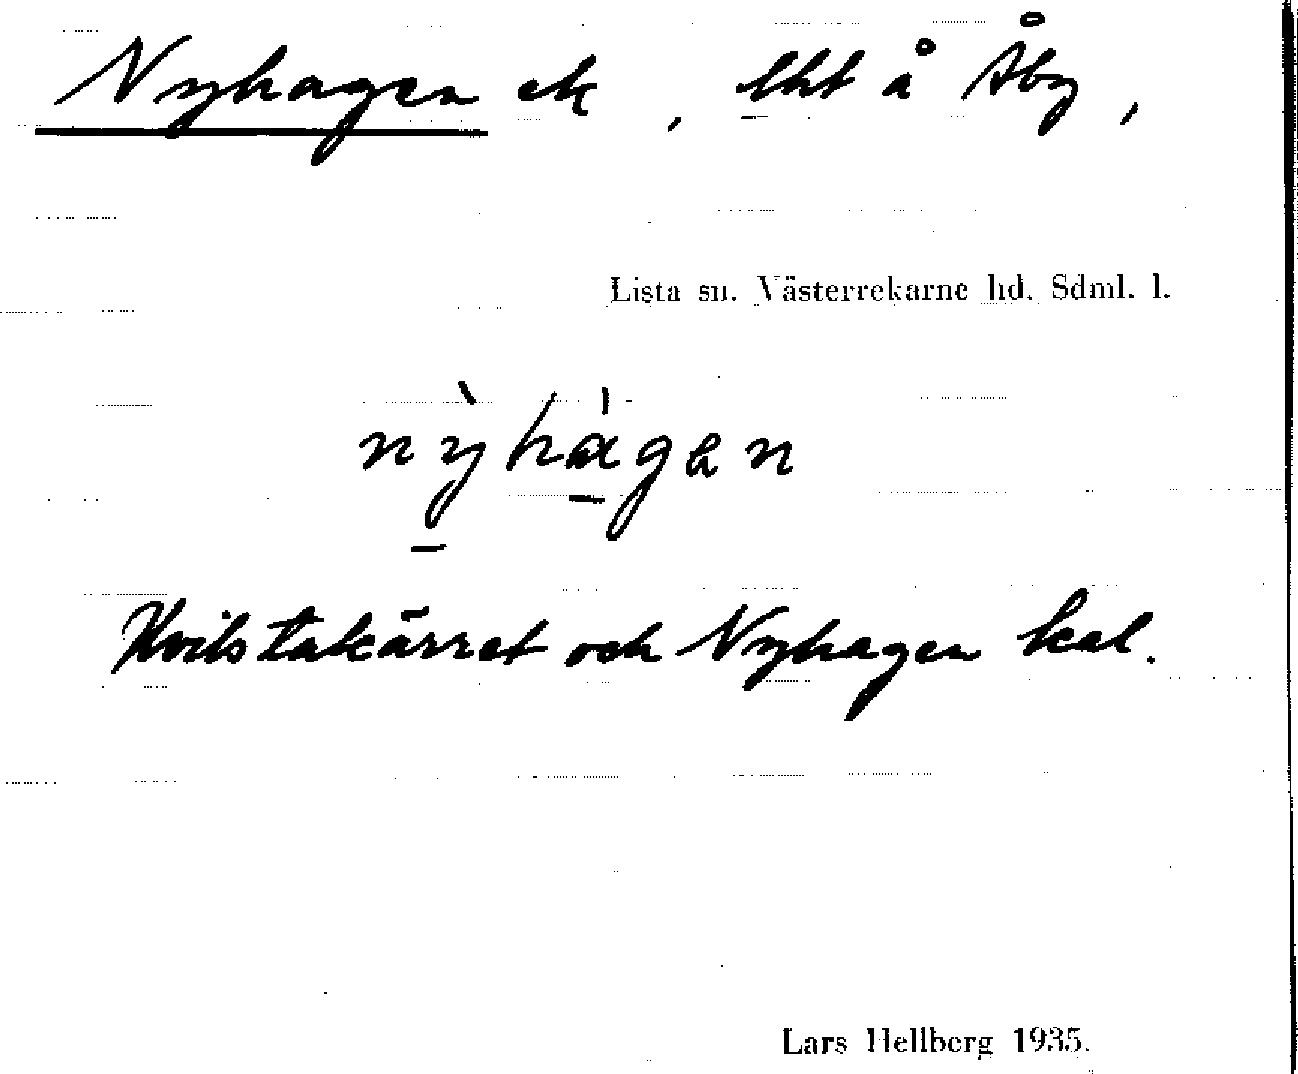 Nyhagen ek, lht å Åby,
Lista sn. Västerrekarne hd. Sdml. l.
nỳhàgen
Hvilstakärret och Nyhagen kal.
Lars Hellberg 1935.